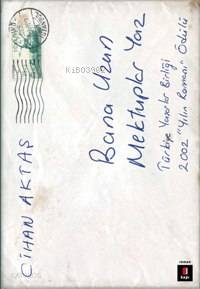 Bana Uzun
Mektuplar Yaz
Türkiye Yazarlar Birliği
2002 "Yılın Romanı" Ödülü
CİHAN AKTAŞ
kapı